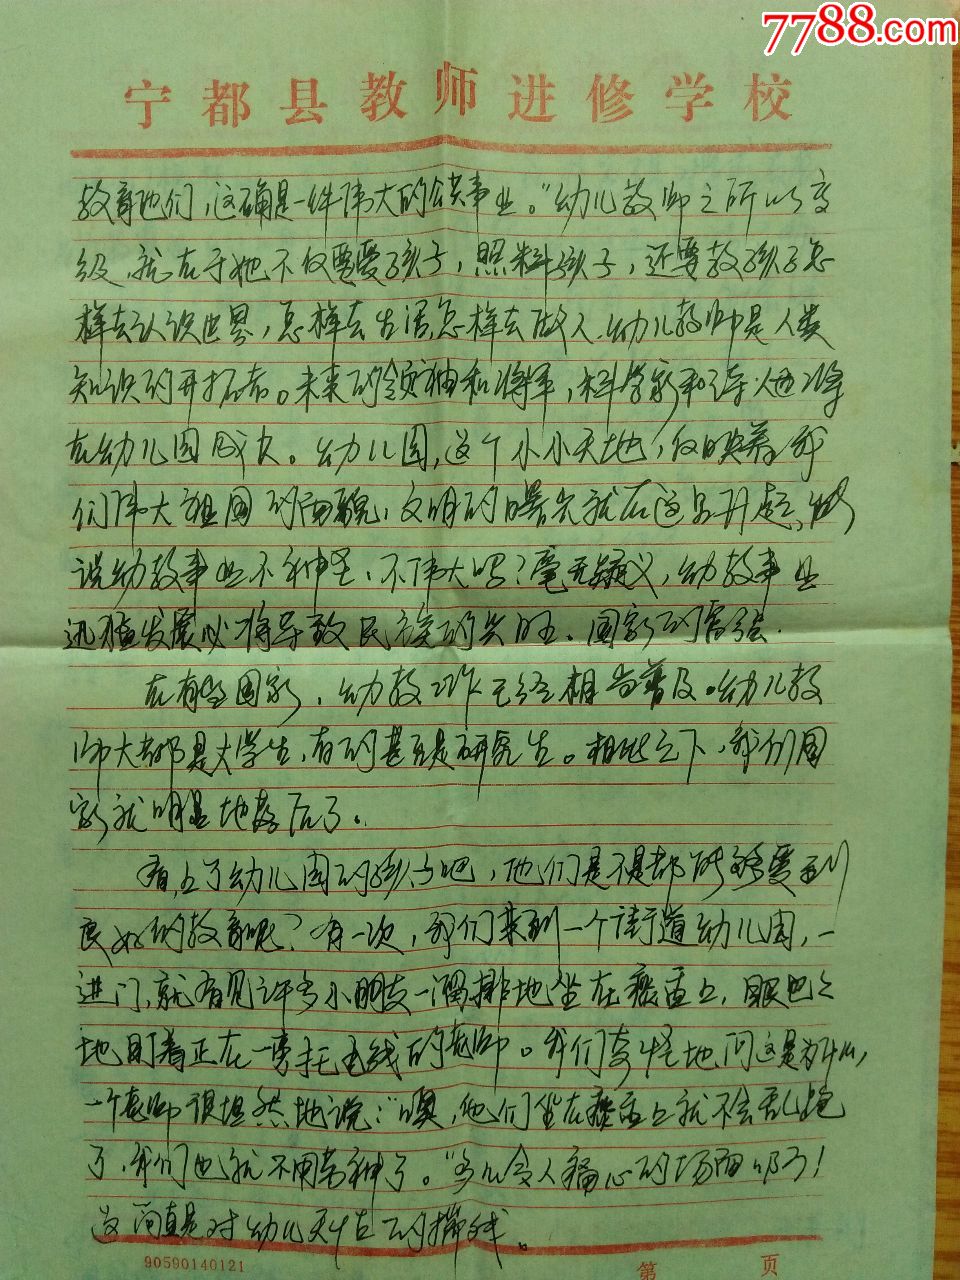 7788.com
宁都县教师进修学校
教育他们，这确是一件伟大的公共事业。"幼儿教师之所以高
级，就在于她不仅要爱孩子，照料孩子，还要教孩子怎
样去认识世界，怎样去生活，怎样去做人。幼儿教师是人类
知识的开拓者。未来的领袖和将军，科学家和诗人也将
在幼儿园成长。幼儿园，这个小小天地，反映着我
们伟大祖国的面貌，文明的曙光就在这里升起，能
说幼教事业不神圣，不伟大吗？毫无疑义，幼教事业
迅猛发展必将导致民族的兴旺、国家的富强。
在有些国家，幼教工作已经相当普及。幼儿教
师大都是大学生，有的甚至是研究生。相比之下，我们国
家就明显地落后了。
看，上了幼儿园的孩子吧，他们是不是都能够受到
良好的教育呢？有一次，我们来到一个街道幼儿园，一
进门，就看见许多小朋友一溜排地坐在痰盂上，眼巴巴
地盯着正在一旁打毛线的老师。我们奇怪地问这是为什么，
一个老师很坦然地说："噢，他们坐在痰盂上就不会乱跑
了，我们也就不用劳神了。"多么令人痛心的场面啊！
这简直是对幼儿天性的摧残。
90590140121
第 页